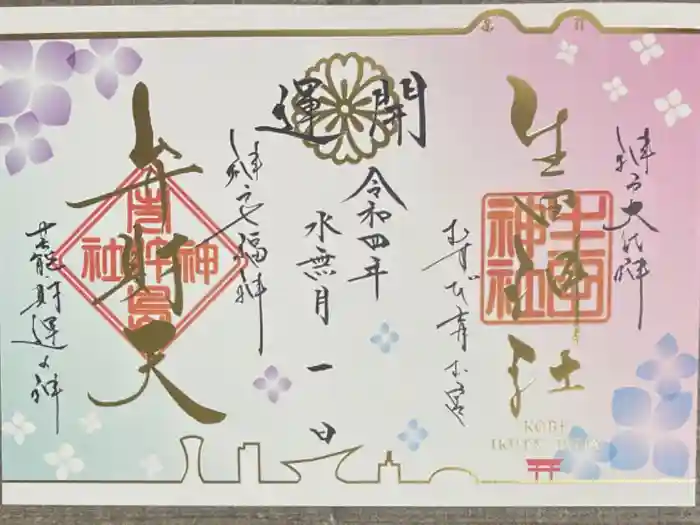 神戸大氏神
生田神社
生田神社
むすび育む宮
KOBE
IKUTA JINJA
開運
令和四年
水無月一日
神戸七福神
弁財天
市杵島神社
芸能財運の神